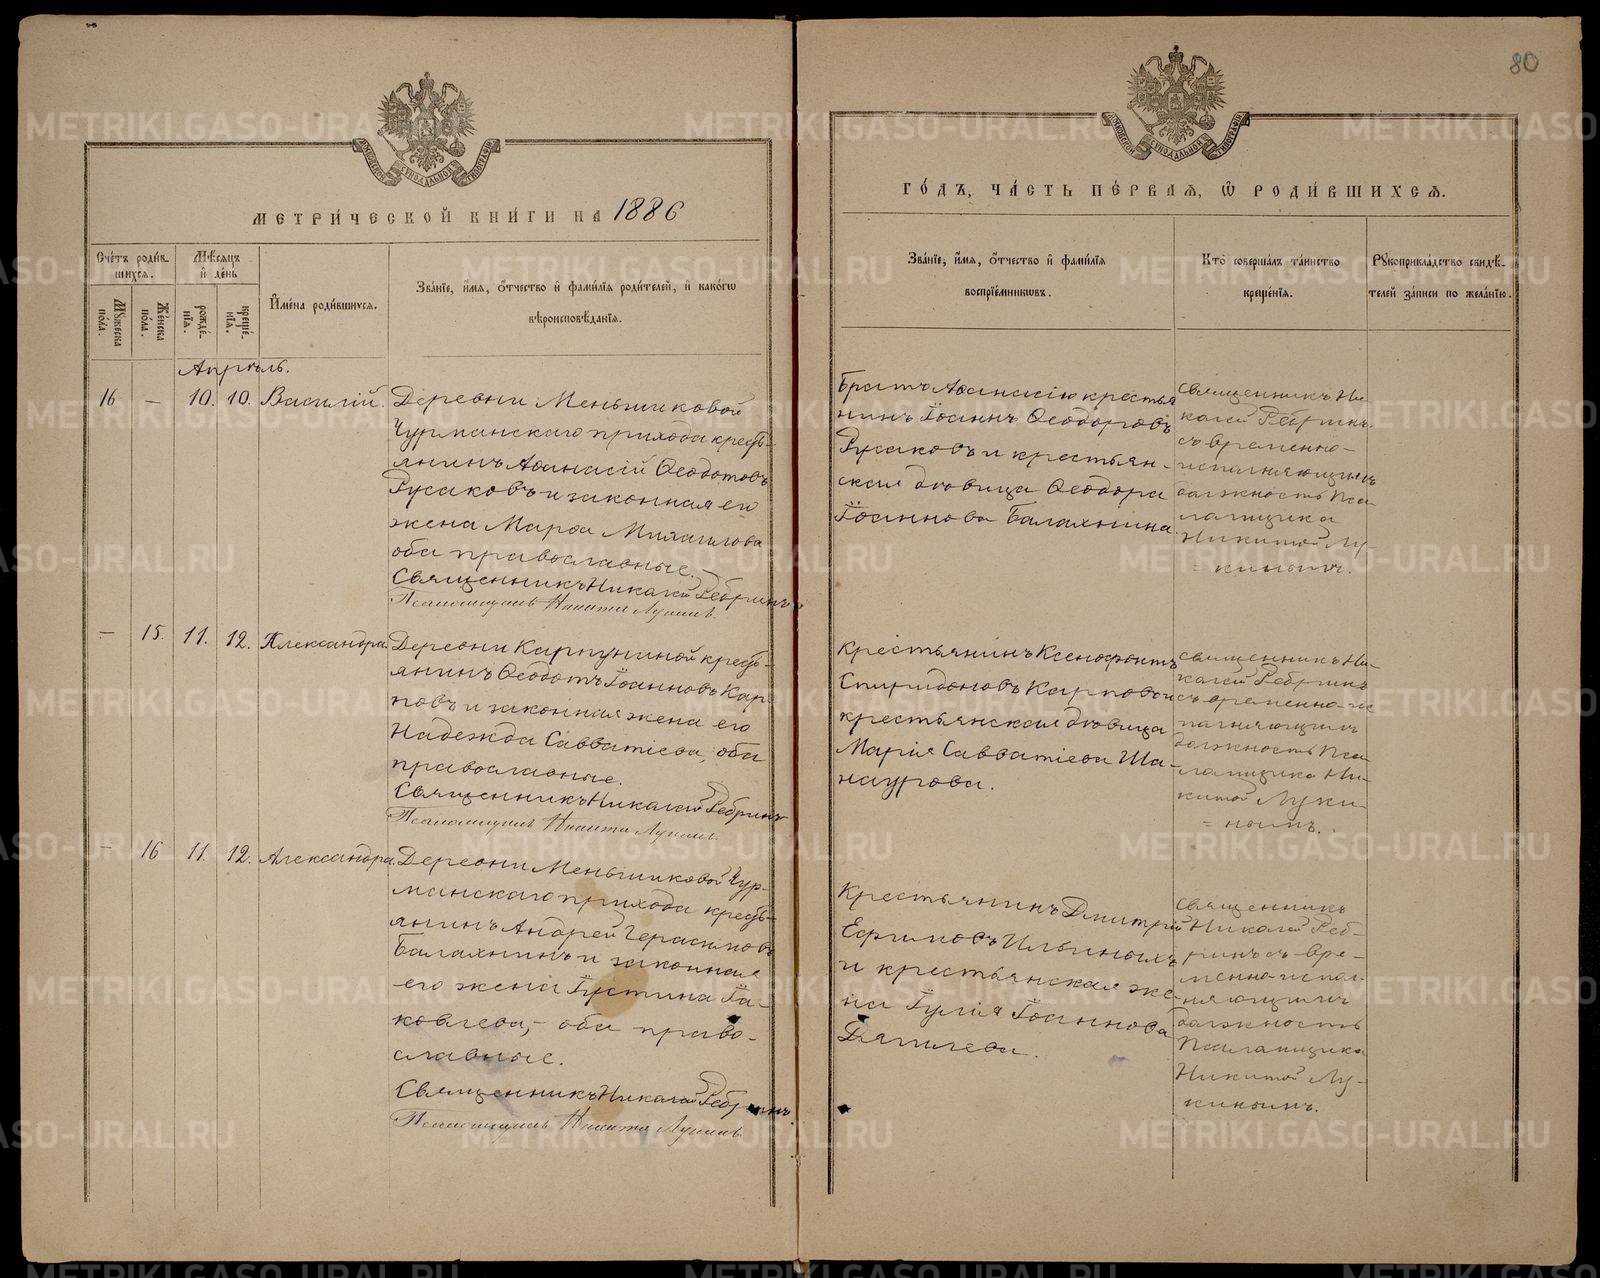 80
МЕТРИ́ЧЕСКОЙ КНИ́ГИ НА 1886
ГО́ДЪ, ЧА́СТЬ ПЕ́РВАЯ, Ѽ РОДИ́ВШИХСѦ.
Сче́тъ роди́в-
шихся.
Мѣ́сяцъ
и҆ де́нь
Му́жеска
по́ла.
Же́нска
по́ла.
рожде́-
нїя.
креще́-
нїя.
И҆мена̀ роди́вшихся.
Зва́нїе, и҆́мя, ѻ҆́тчество и҆ фами́лїя роди́телей, и҆ како́гѡ
вѣроисповѣ́данїя.
Зва́нїе, и҆́мя, ѻ҆́тчество и҆ фами́лїя
воспрїе́мникѡвъ.
Кто̀ соверша́лъ та́инство
креще́нїя.
Рукоприкла́дство свидѣ́-
телей за́писи по жела́нїю.
Апрѣль.
16 — 10. 10. Василій.
Деревни Меньшиковой
Чурманскаго прихода кресть-
янинъ Аѳанасій Ѳеодотовъ
Русаковъ и законная его
жена Марѳа Михаилова
оба православные.
Священникъ Николай Ребринъ
Псаломщикъ Никита Лукинъ.
Братъ Аѳанасію крестья
нинъ Іоаннъ Ѳеодоровъ
Русаковъ и крестьян-
ская дѣвица Ѳеодора
Іоаннова Балахнина
Священникъ Ни-
колай Ребринъ.
съ временно-
исполняющимъ
должность Пса-
ломщика
Никитой Лу-
= кинымъ.
— 15. 11. 12. Александра.
Деревни Карпуниной кресть-
янинъ Ѳеодотъ Іоанновъ Кар
повъ и законная жена его
Надежда Савватіева, оба
православные.
Священникъ Николай Ребринъ
Псаломщикъ Никита Лукинъ.
Крестьянинъ Ксенофонтъ
Спиридоновъ Карповъ и
крестьянская дѣвица
Марія Савватіева Ша-
наурова.
Священникъ Ни-
колай Ребринъ
съ временно-ис
полняющимъ
должность Пса
ломщика Ни-
китой Луки-
= нымъ.
— 16 11. 12. Александра.
Деревни Меньшиковой Чур-
манскаго прихода кресть-
янинъ Андрей Герасимовъ
Балахнинъ и законная
его жена Іустина Іа-
ковлева, – оба право-
славные.
Священникъ Николай Ребринъ
Псаломщикъ Никита Лукинъ.
Крестьянинъ Дмитрій
Ефимовъ Ильиныхъ
и крестьянская же-
на Іулія Іоаннова
Дягилева.
Священникъ
Николай Реб-
ринъ съ вре-
менно-испол-
няющимъ
должность
Псаломщика
Никитой Лу-
кинымъ.